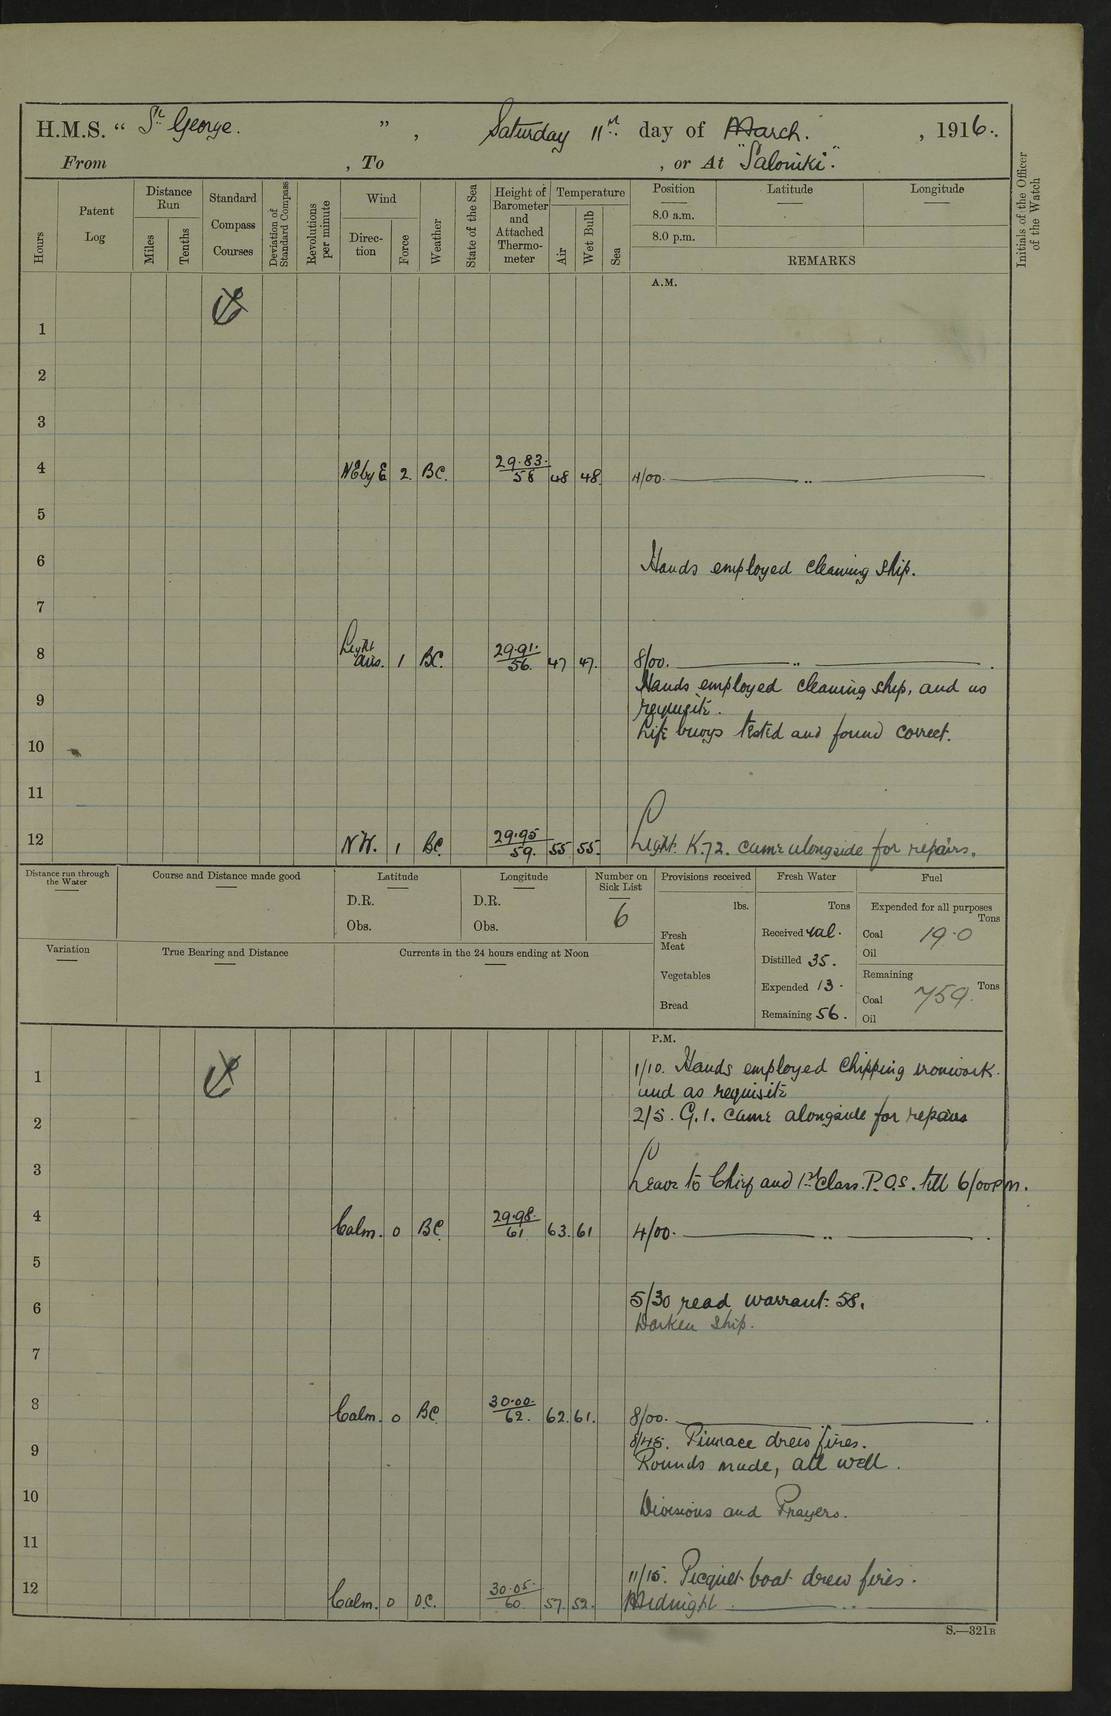 H.M.S. " St George. " , Saturday 11th day of March. , 1916.
From , To , or At "Saloniki".
Hours
Patent Log
Distance Run
Miles
Tenths
Standard Compass Courses
Deviation of Standard Compass
Revolutions per minute
Wind
Direction
Force
Weather
State of the Sea
Height of Barometer and Attached Thermometer
Temperature
Air
Wet Bulb
Sea
Position
8.0 a.m.
8.0 p.m.
Latitude
Longitude
REMARKS
Initials of the Officer of the Watch
A.M.
1
2
3
4 NE by E 2. BC. 29.83. 58 48 48. 4/00. ——— " ———
5
6 Hands employed cleaning ship.
7
8 Light airs. 1 BC. 29.91. 56. 47 47. 8/00. ——— " ——— .
Hands employed cleaning ship, and as
9 requisite.
Life buoys tested and found correct.
10
11
12 NW. 1 BC. 29.95 59. 55 55. Light. K.72. came alongside for repairs.
Distance run through the Water
Course and Distance made good
Latitude
D.R.
Obs.
Longitude
D.R.
Obs.
Number on Sick List
6
Provisions received
lbs.
Fresh Meat
Vegetables
Bread
Fresh Water
Tons
Received
Distilled 35.
Expended 13.
Remaining 56.
Fuel
Expended for all purposes
Tons
Coal 19.0
Oil
Remaining
Tons
Coal 759.
Oil
Variation
True Bearing and Distance
Currents in the 24 hours ending at Noon
P.M.
1 1/10. Hands employed chipping ironwork.
and as requisite
2 2/5. G.1. came alongside for repairs
3 Leave to Chief and 1st Class. P.O.s. till 6/00 p m.
4 Calm. 0 BC. 29.98. 61 63. 61 4/00. ——— " ——— .
5
6 5/30 read warrant. 58.
Darken ship.
7
8 Calm. 0 BC. 30.00. 62. 62. 61. 8/00. ——— " ——— .
8/45. Pinnace drew fires.
9 Rounds made, all well.
10 Divisions and Prayers.
11
11/15. Picquet boat drew fires.
12 Calm. 0 O.C. 30.05. 60. 57. 52. Midnight ——— " ———
S.—321B